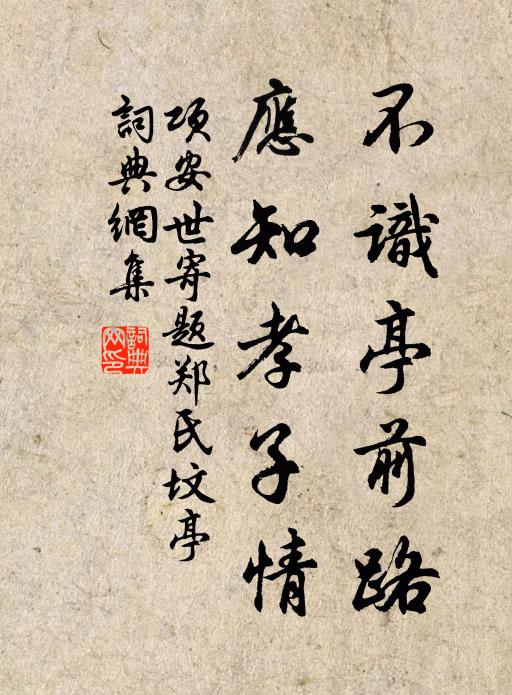 不識亭前路
應知孝子情
項安世寄题郑氏坟亭
詞典網集
詞典网印